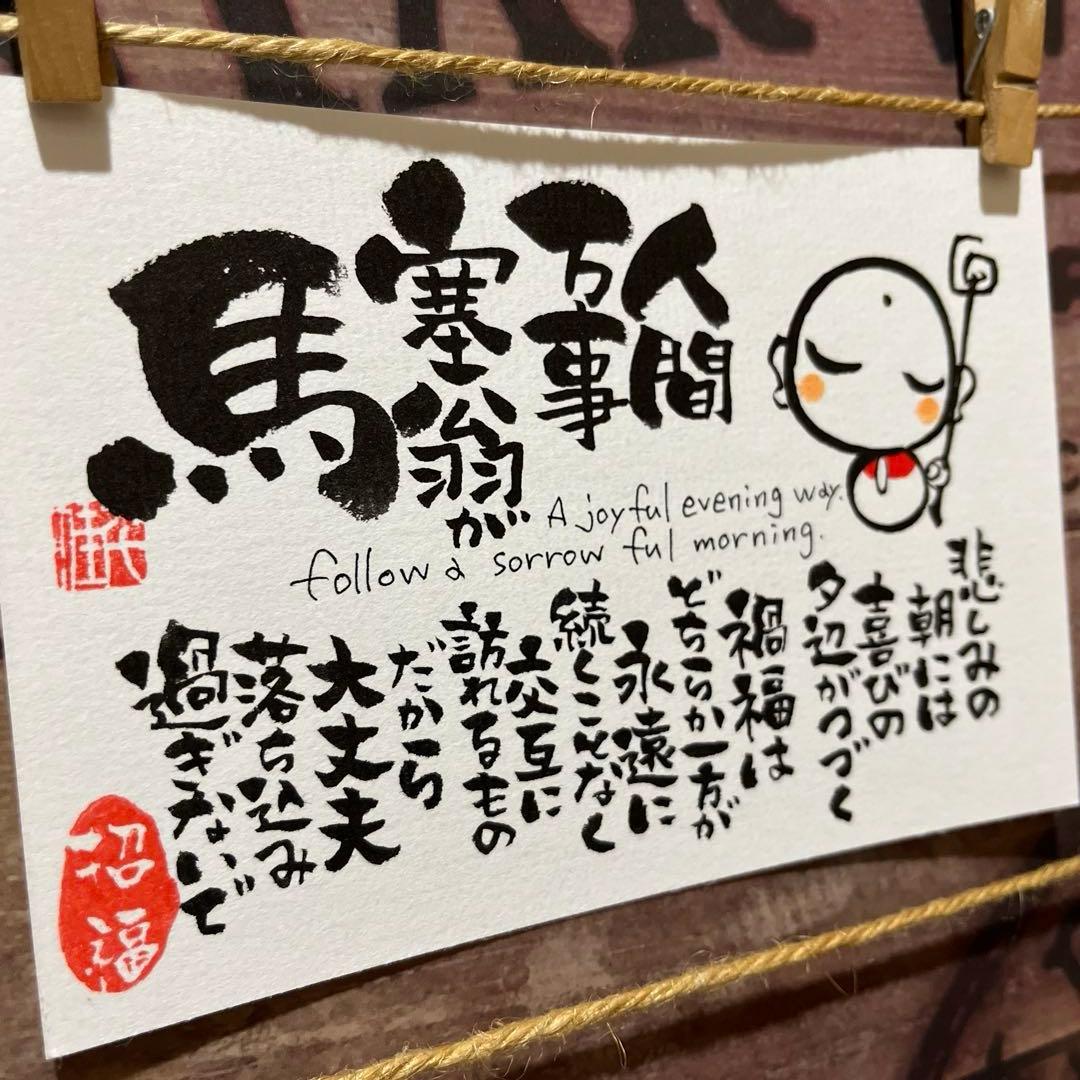 人間
万事
塞翁が
馬
A joyful evening way.
follow a sorrow ful morning.
悲しみの
朝には
喜びの
夕辺がつづく
禍福は
どちらか一方が
永遠に
続くことなく
交互に
訪れるもの
だから
大丈夫
落ち込み
過ぎないで
招福